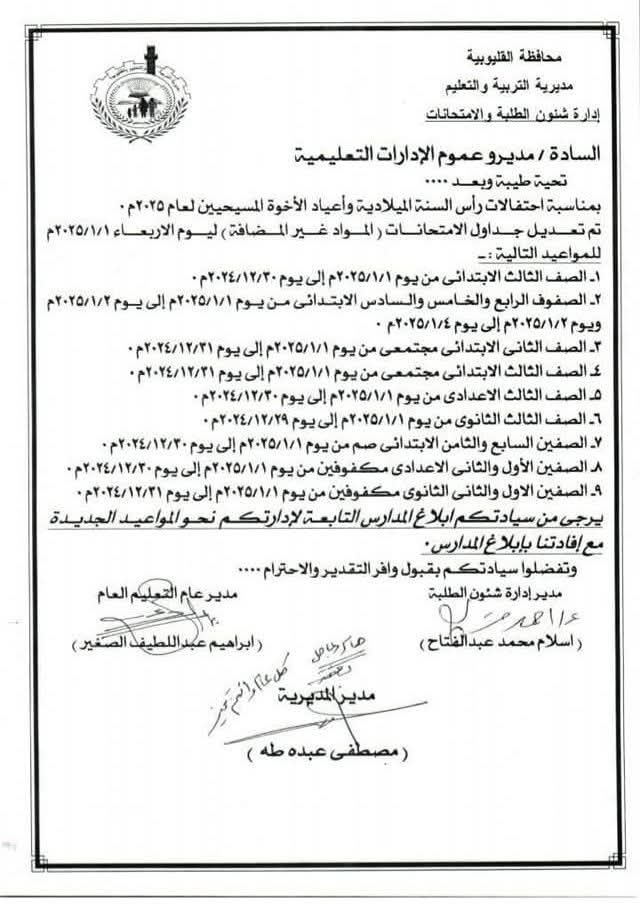 محافظة القليوبية
مديرية التربية والتعليم
إدارة شئون الطلبة والامتحانات
السادة / مديرو عموم الإدارات التعليمية
تحية طيبة وبعد ....
بمناسبة احتفالات رأس السنة الميلادية وأعياد الأخوة المسيحيين لعام ٢٠٢٥م.
تم تعديل جداول الامتحانات ( المواد غير المضافة ) ليوم الاربعاء ٢٠٢٥/١/١م
للمواعيد التالية :ـ
١ـ الصف الثالث الابتدائى من يوم ٢٠٢٥/١/١م إلى يوم ٢٠٢٤/١٢/٣٠م.
٢ـ الصفوف الرابع والخامس والسادس الابتدائى من يوم ٢٠٢٥/١/١م إلى يوم ٢٠٢٥/١/٢م
ويوم ٢٠٢٥/١/٢م إلى يوم ٢٠٢٥/١/٤م .
٣ـ الصف الثانى الابتدائى مجتمعى من يوم ٢٠٢٥/١/١م إلى يوم ٢٠٢٤/١٢/٣١م.
٤ـ الصف الثالث الابتدائى مجتمعى من يوم ٢٠٢٥/١/١م إلى يوم ٢٠٢٤/١٢/٣١م.
٥ـ الصف الثالث الاعدادى من يوم ٢٠٢٥/١/١م إلى يوم ٢٠٢٤/١٢/٣٠م.
٦ـ الصف الثالث الثانوى من يوم ٢٠٢٥/١/١م إلى يوم ٢٠٢٤/١٢/٢٩م.
٧ـ الصفين السابع والثامن الابتدائى صم من يوم ٢٠٢٥/١/١م إلى يوم ٢٠٢٤/١٢/٣٠م.
٨ـ الصفين الأول والثانى الاعدادى مكفوفين من يوم ٢٠٢٥/١/١م إلى يوم ٢٠٢٤/١٢/٣٠م.
٩ـ الصفين الاول والثانى الثانوى مكفوفين من يوم ٢٠٢٥/١/١م إلى يوم ٢٠٢٤/١٢/٣١م.
يرجى من سيادتكم ابلاغ المدارس التابعة لإدارتكم نحو المواعيد الجديدة
مع إفادتنا بإبلاغ المدارس.
وتفضلوا سيادتكم بقبول وافر التقدير والاحترام ....
مدير إدارة شئون الطلبة
مدير عام التعليم العام
( اسلام محمد عبدالفتاح )
( ابراهيم عبداللطيف الصغير )
كل عام وأنتم بخير
مدير المديرية
( مصطفى عبده طه )